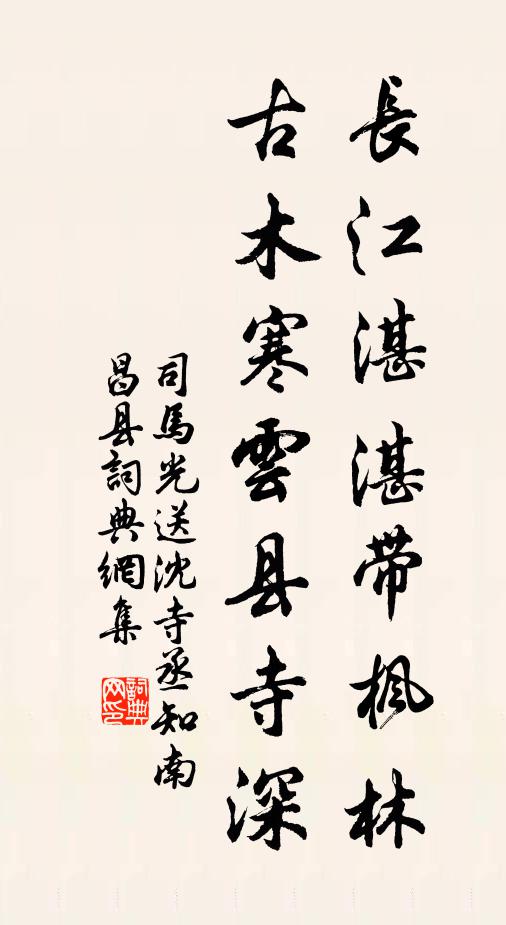 長江湛湛带楓林
古木寒雲县寺深
司馬光送沈寺丞知南
昌县詞典網集
詞典
网印